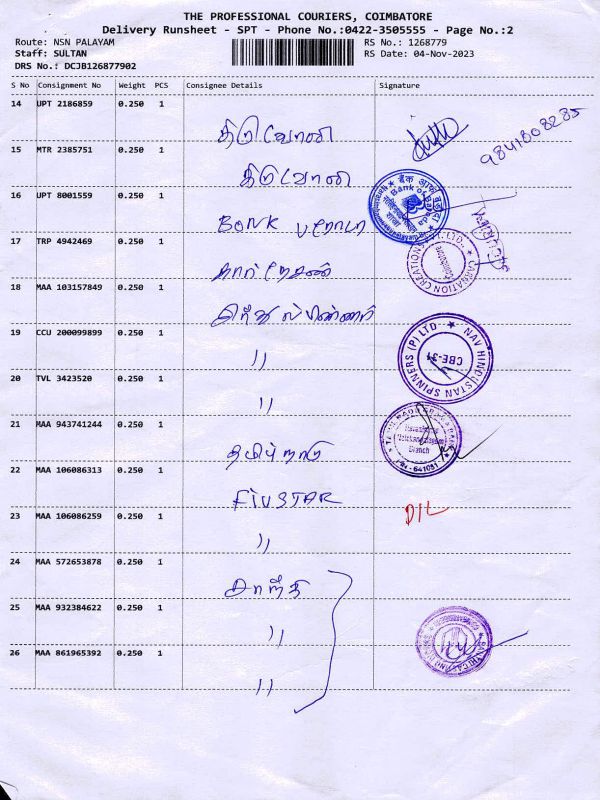 THE PROFESSIONAL COURIERS, COIMBATORE
Delivery Runsheet - SPT - Phone No.:0422-3505555 - Page No.:2
Route: NSN PALAYAM RS No.: 1268779
Staff: SULTAN RS Date: 04-Nov-2023
DRS No.: DCJB126877902
S No Consignment No Weight PCS Consignee Details Signature
14 UPT 2186859 0.250 1
திருவோணி
9841808285
15 MTR 2385751 0.250 1
திருவோணி
16 UPT 8001559 0.250 1
बैंक ऑफ बड़ौदा
Bank of Baroda
BONK பரோடா
17 TRP 4942469 0.250 1
CARNATION CREATIONS (P) LTD.,
Coimbatore
18 MAA 103157849 0.250 1
19 CCU 200099899 0.250 1
NAV HINDUSTAN SPINNERS (P) LTD
CBE-31
"
20 TVL 3423520 0.250 1
"
21 MAA 943741244 0.250 1
Branch
641031
தமிழ்நாடு
22 MAA 106086313 0.250 1
FIVSTAR
23 MAA 106086259 0.250 1
D/L
"
24 MAA 572653878 0.250 1
சாந்தி
25 MAA 932384622 0.250 1
"
26 MAA 861965392 0.250 1
"